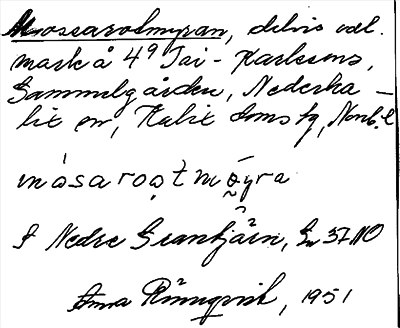 Mossarotmyran, delvis odl.
mark å 4⁹ Isi-Karlsons,
Gammelgården, Nederka-
lix sn, Kalix domsfg, Norrb. l
måsaro̥ǝt mö̞yra
f Nedre Grantjärn, Gr 37 NO
Anna Rönnqvist, 1951